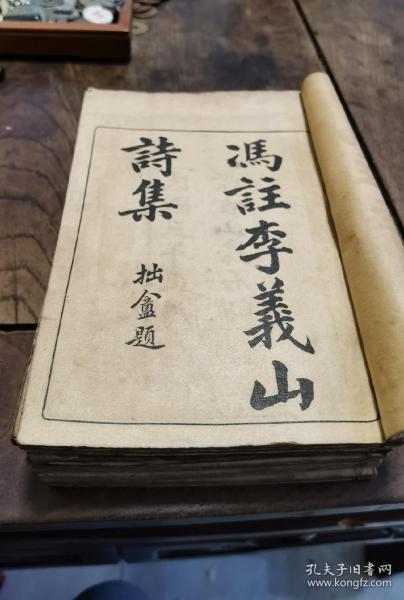 馮註李義山
詩集
拙盦題
孔夫子旧书网
www.kongfz.com